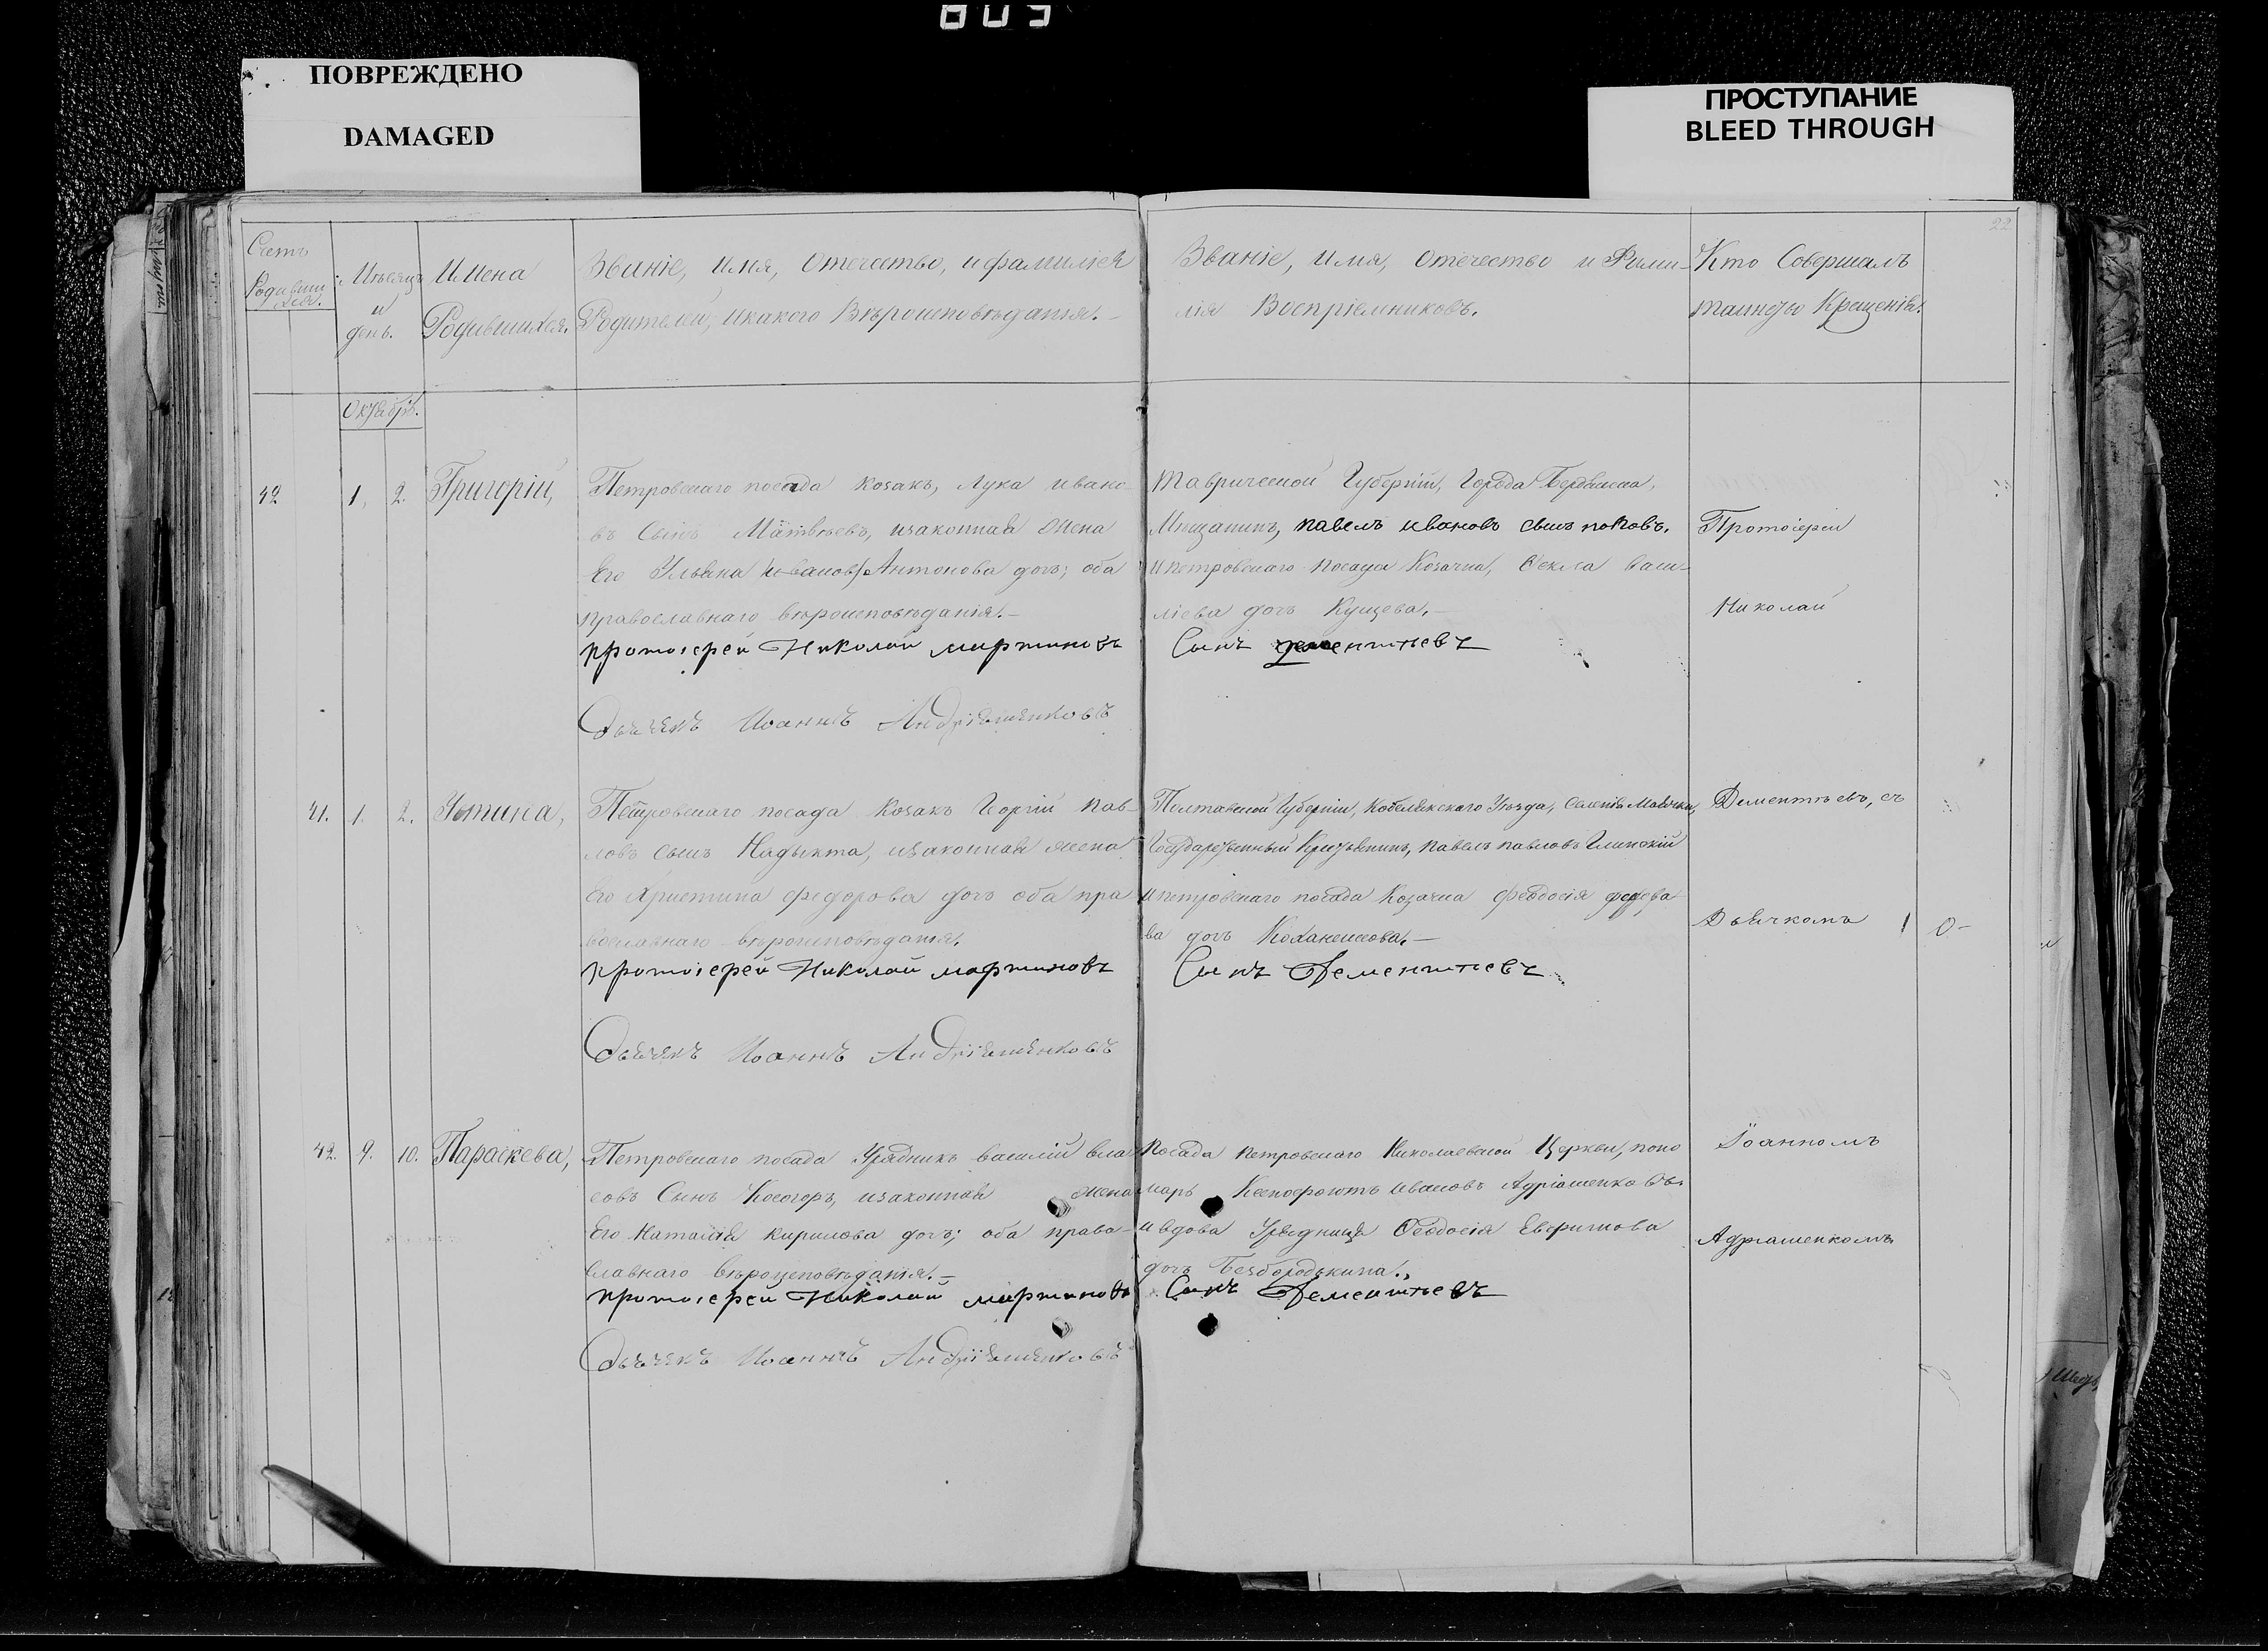 809
ПОВРЕЖДЕНО
DAMAGED
ПРОСТУПАНИЕ
BLEED THROUGH
22
Счетъ
Родивши
хся.
Мѣсяцъ
и
день.
Имена
Родившихся.
Званіе, имя, отечество, и фамилія
Родителей, и какого Вѣроисповѣданія.-
Званіе, имя, отечество и Фами-
лія Воспріемниковъ.
Кто Совершалъ
таинство Крещенія.
Октябрь.
42
1.
2.
Григорій,
Петровскаго посада козакъ, Лука ивано-
въ Сынъ Матвѣевъ, и законная жена
Его Ульяна Антонова дочь; оба
православнаго вѣроисповѣданія.-
протоіерей Николай мартиновъ
Дьячекъ Иоаннъ Андріяшенковъ
Таврической Губерніи, Города Бердянска,
Мѣщанинъ, павелъ ивановъ сынъ поповъ.
и петровскаго посада Козачка, Ѳекла васи-
ліева дочь Кущева.-
Сынъ дементьевъ
Протоіерей
Николай
41.
1.
2.
Устина,
Петровскаго посада козакъ Георгій пав-
ловъ сынъ и законная жена
Его Христина федорова дочь оба пра
вославнаго вѣроисповѣданія.
протоіерей Николай мартиновъ
Дьячекъ Иоаннъ Андріяшенковъ
Полтавской Губерніи, Кобелякскаго Уѣзда, Селенія Маячки,
Государственный Крестьянинъ, павелъ павловъ Глинскій
и петровскаго посада Козачка феодосія
ва дочь
Сынъ Дементьевъ
Дементьевъ, съ
Дьячкомъ
1
0-
42.
9.
10.
Параскева,
Петровскаго посада Урядникъ василій вла
совъ Сынъ Косогоръ, и законная жена
Его Наталія кирилова дочь; оба право-
славнаго вѣроисповѣданія.-
протоіерей Николай мартиновъ
Дьячекъ Иоаннъ Андріяшенковъ
Посада петровскаго Николаевской Церкви, поно
марь Ксенофонтъ ивановъ Адріашенковъ.
и вдова Урядница Ѳеодосія Евфимова
дочь Безбородькина.
Сынъ Дементьевъ
Іоанномъ
Адріашенкомъ